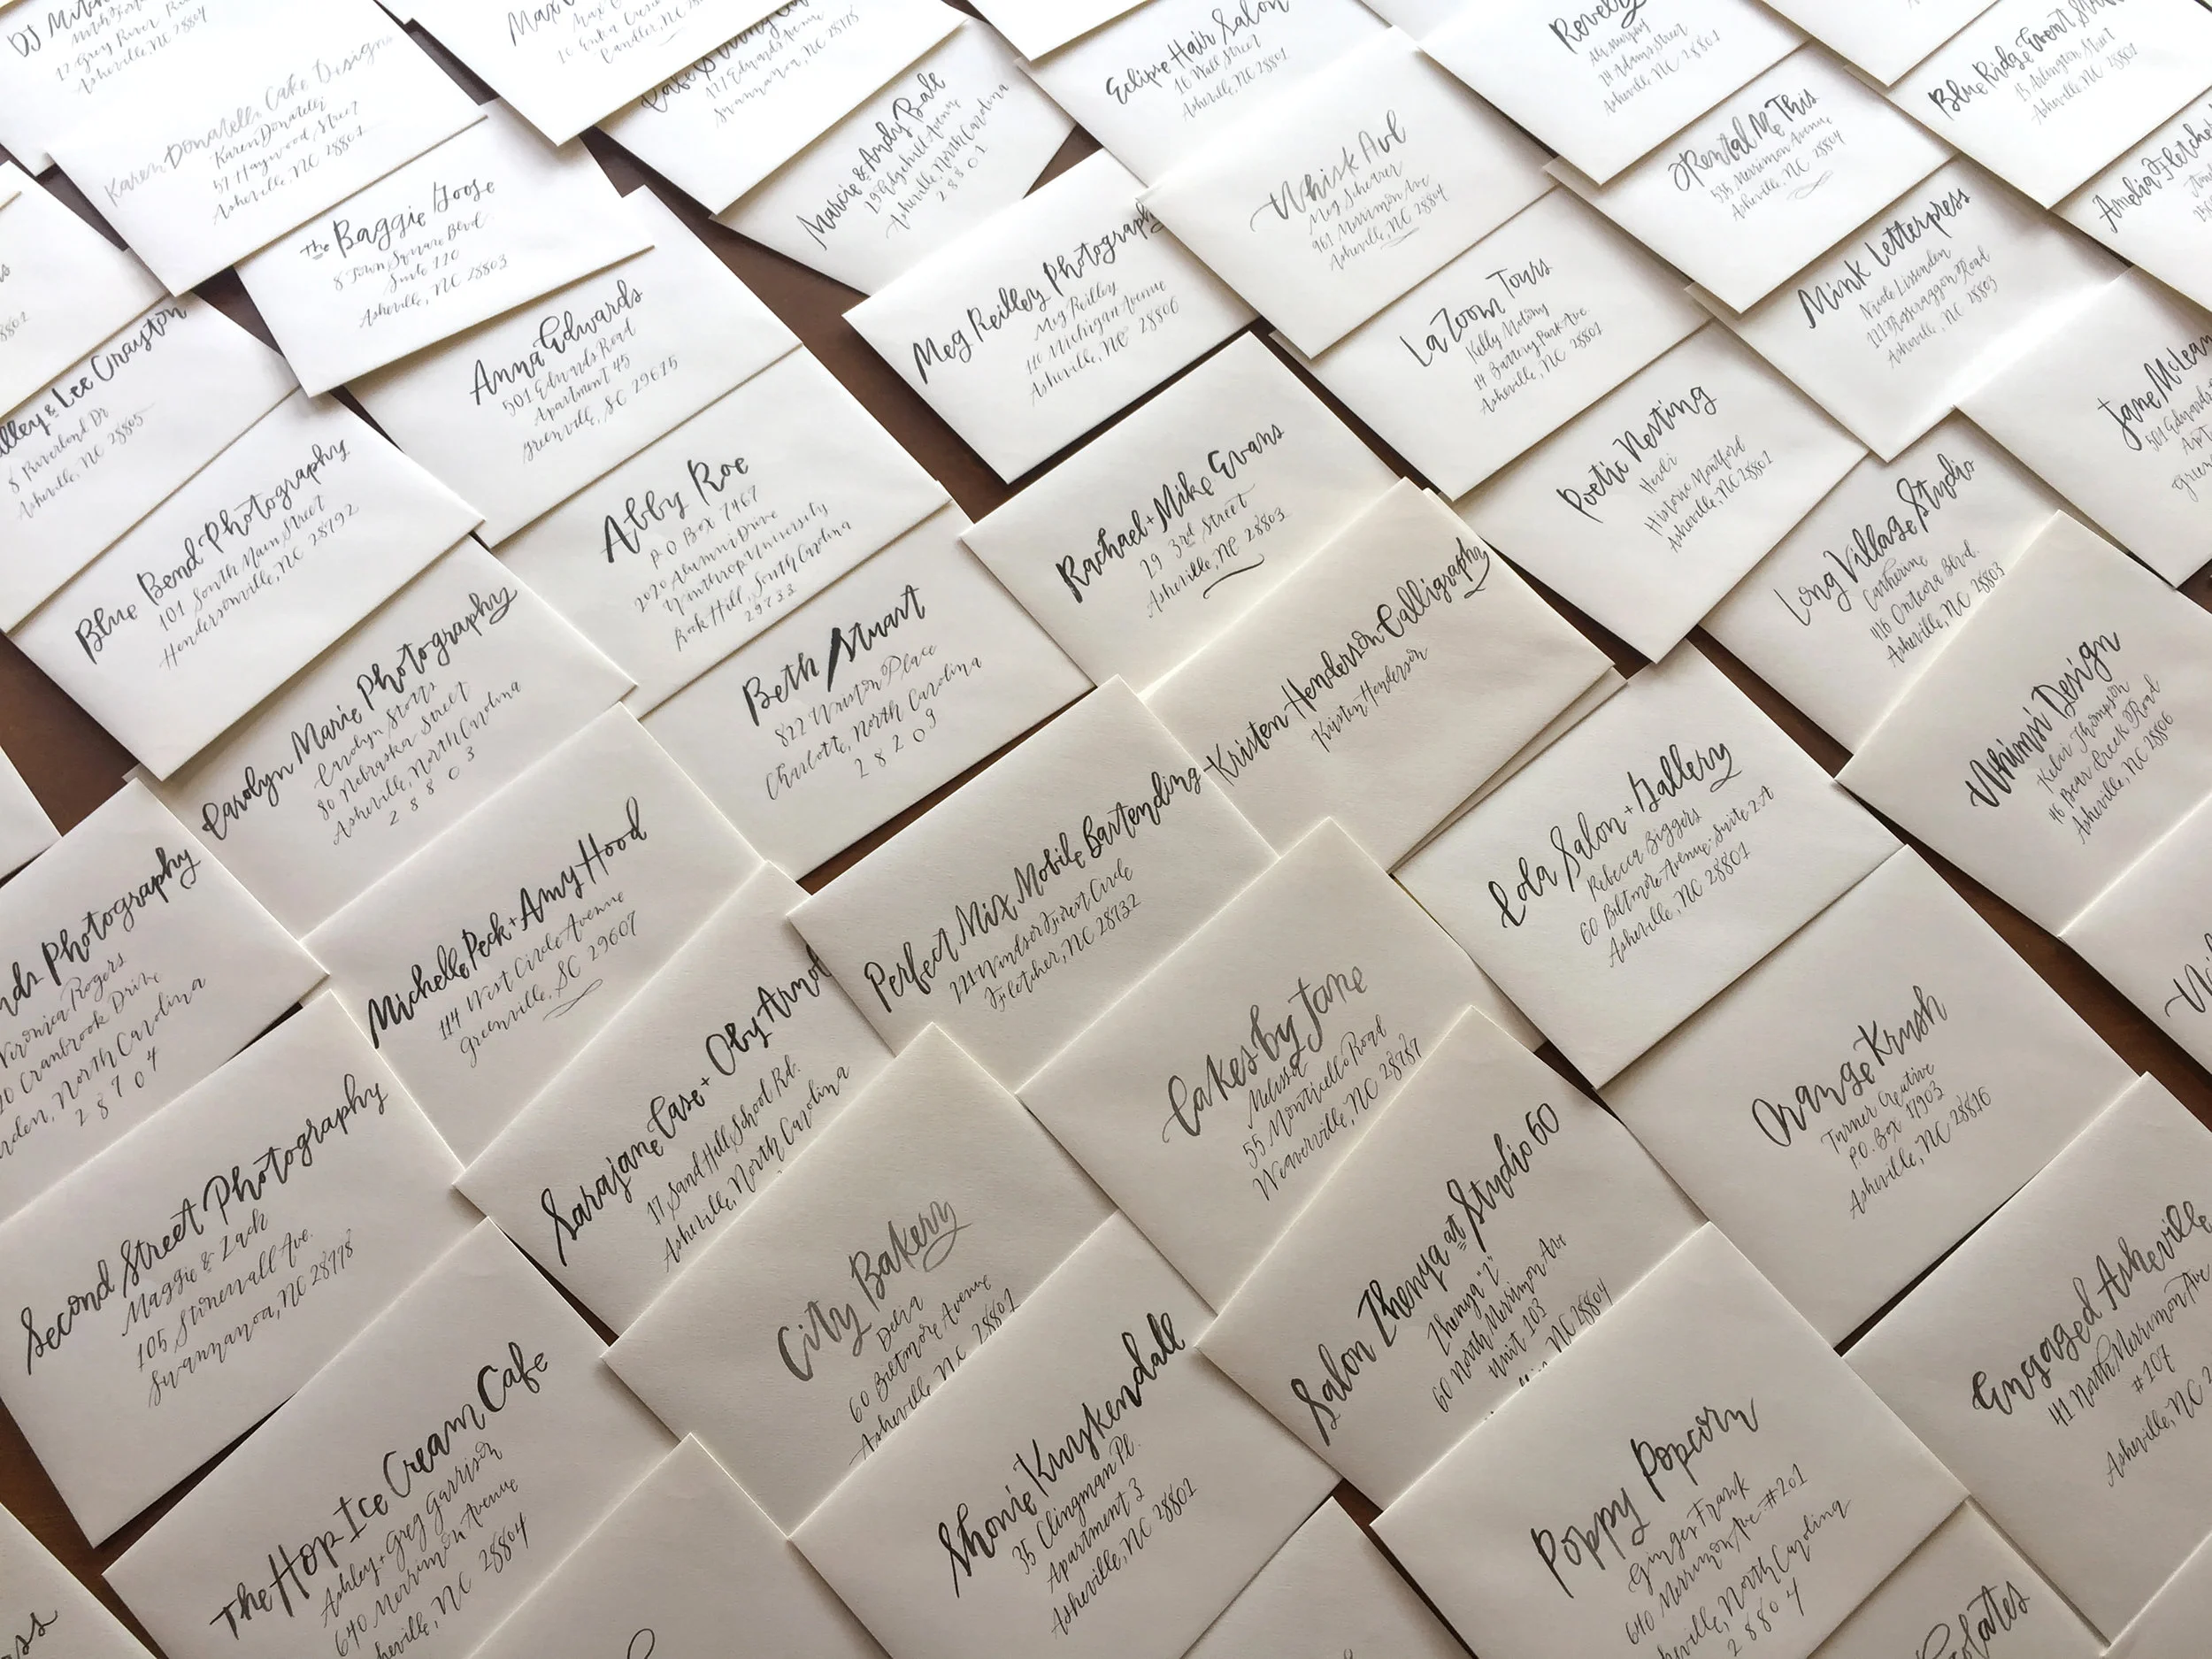 DJ
Asheville, NC 28804
Karen Donatelli Cake Designs
Karen Donatelli
57 Haywood Street
Asheville, NC 28801
the Baggie Goose
8 Town Square Blvd.
Suite 220
Asheville, NC 28803
Max
Candler, NC
177 Edwards Avenue
Swannanoa, NC 28778
Marcie & Andy Bale
29 Ridgehill Avenue
Asheville, North Carolina
28801
Eclipse Hair Salon
16 Wall Street
Asheville, NC 28801
Whisk Avl
Meg Schearer
961 Merrimon Ave
Asheville, NC 28804
Revelry
Asheville, NC 28801
Rental Me This
535 Merrimon Avenue
Asheville, NC 28804
Blue Ridge Event
15 Arlington Street
Asheville, NC 28801
Amelia Fletcher
Mink Letterpress
Asheville, NC 28803
Meg Reilley Photography
Meg Reilley
116 Michigan Avenue
Asheville, NC 28806
LaZoom Tours
14 Battery Park Ave.
Asheville, NC 28801
Poetic Nesting
Heidi
Historic Montford
Asheville, NC 28801
Jane McLean
501 Edwards
Long Village Studio
Catherine
416 Onteora Blvd.
Asheville, NC 28803
Whimsi Design
46 Bear Creek Road
Asheville, NC 28806
& Lee Crayton
8 Riverbend Dr
Asheville, NC 28805
Blue Bend Photography
101 South Main Street
Hendersonville, NC 28792
Anna Edwards
501 Edwards Road
Apartment 45
Greenville, SC 29615
Abby Roe
P O Box 7467
2020 Alumni Drive
Winthrop University
Rock Hill, South Carolina
29733
Rachael + Mike Evans
29 3rd Street
Asheville, NC 28803
Beth Stuart
822 Wriston Place
Charlotte, North Carolina
28209
Kristen Henderson Calligraphy
Kristen Henderson
Carolyn Marie Photography
Carolyn Stotts
80 Nebraska Street
Asheville, North Carolina
28803
Lola Salon + Gallery
Rebecca Biggers
60 Biltmore Avenue Suite 2A
Asheville, NC 28801
Michelle Peck + Amy Hood
114 West Circle Avenue
Greenville, SC 29607
Perfect Mix Mobile Bartending
221 Windsor Forest Circle
Fletcher, NC 28732
Photography
Veronica Rogers
Cranbrook Drive
North Carolina
28704
Sarajane Case + Oby Arnold
17 Sand Hill School Rd.
Asheville, North Carolina
Cakes by Jane
Melissa
55 Monticello Road
Weaverville, NC 28787
Orange Krush
Turner Creative
P.O. Box 17903
Asheville, NC 28816
Second Street Photography
Maggie & Zach
105 Stonewall Ave.
Swannanoa, NC 28778
City Bakery
60 Biltmore Avenue
Asheville NC 28801
Salon Zhenya at Studio 60
Zhenya "Z"
60 North Merrimon Ave
Unit 103
NC 28804
Engaged Asheville
41 North Merrimon Ave
#107
Asheville, NC
The Hop Ice Cream Cafe
Ashley + Greg Garrison
640 Merrimon Avenue
NC 28804
Shonie Kuykendall
35 Clingman Pl.
Apartment 3
Asheville, NC 28801
Poppy Popcorn
Ginger Frank
640 Merrimon Ave #201
North Carolina
28804